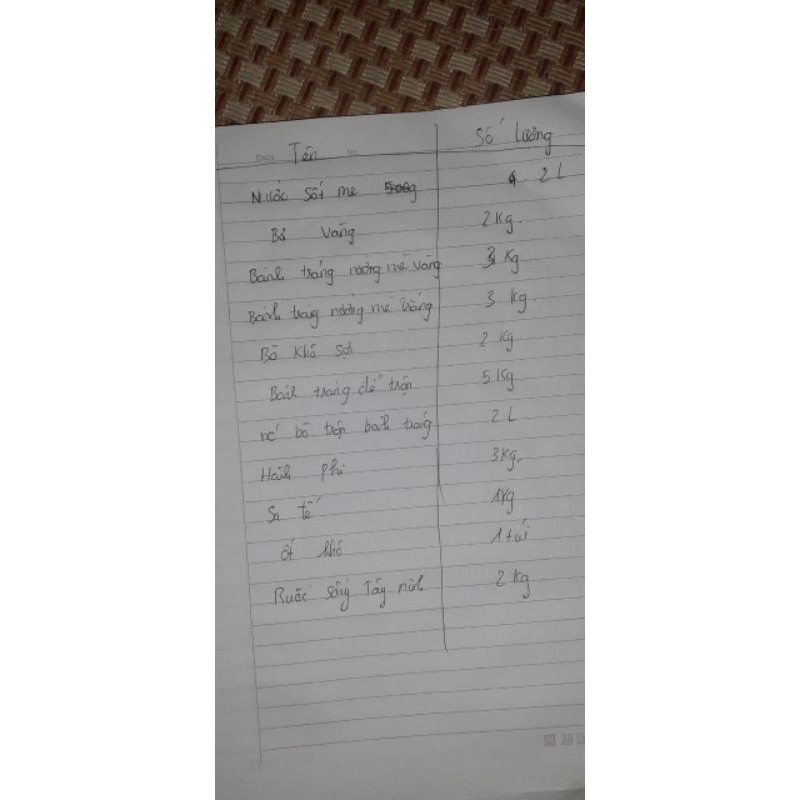 Tên Số lượng
Nước sốt me 2 L
Bò vàng 2 Kg.
Bánh tráng nướng mè vàng 3 Kg
Bánh tráng nướng mè trắng 3 Kg
Bò Khô Sợi 2 Kg
Bánh tráng dẻ trộn 5 Kg
bò trộn bánh tráng 2 L
Hành phi 3Kg.
Sa tế 1Kg
ớt khô 1 túi
Ruốc sấy Tây ninh 2 Kg